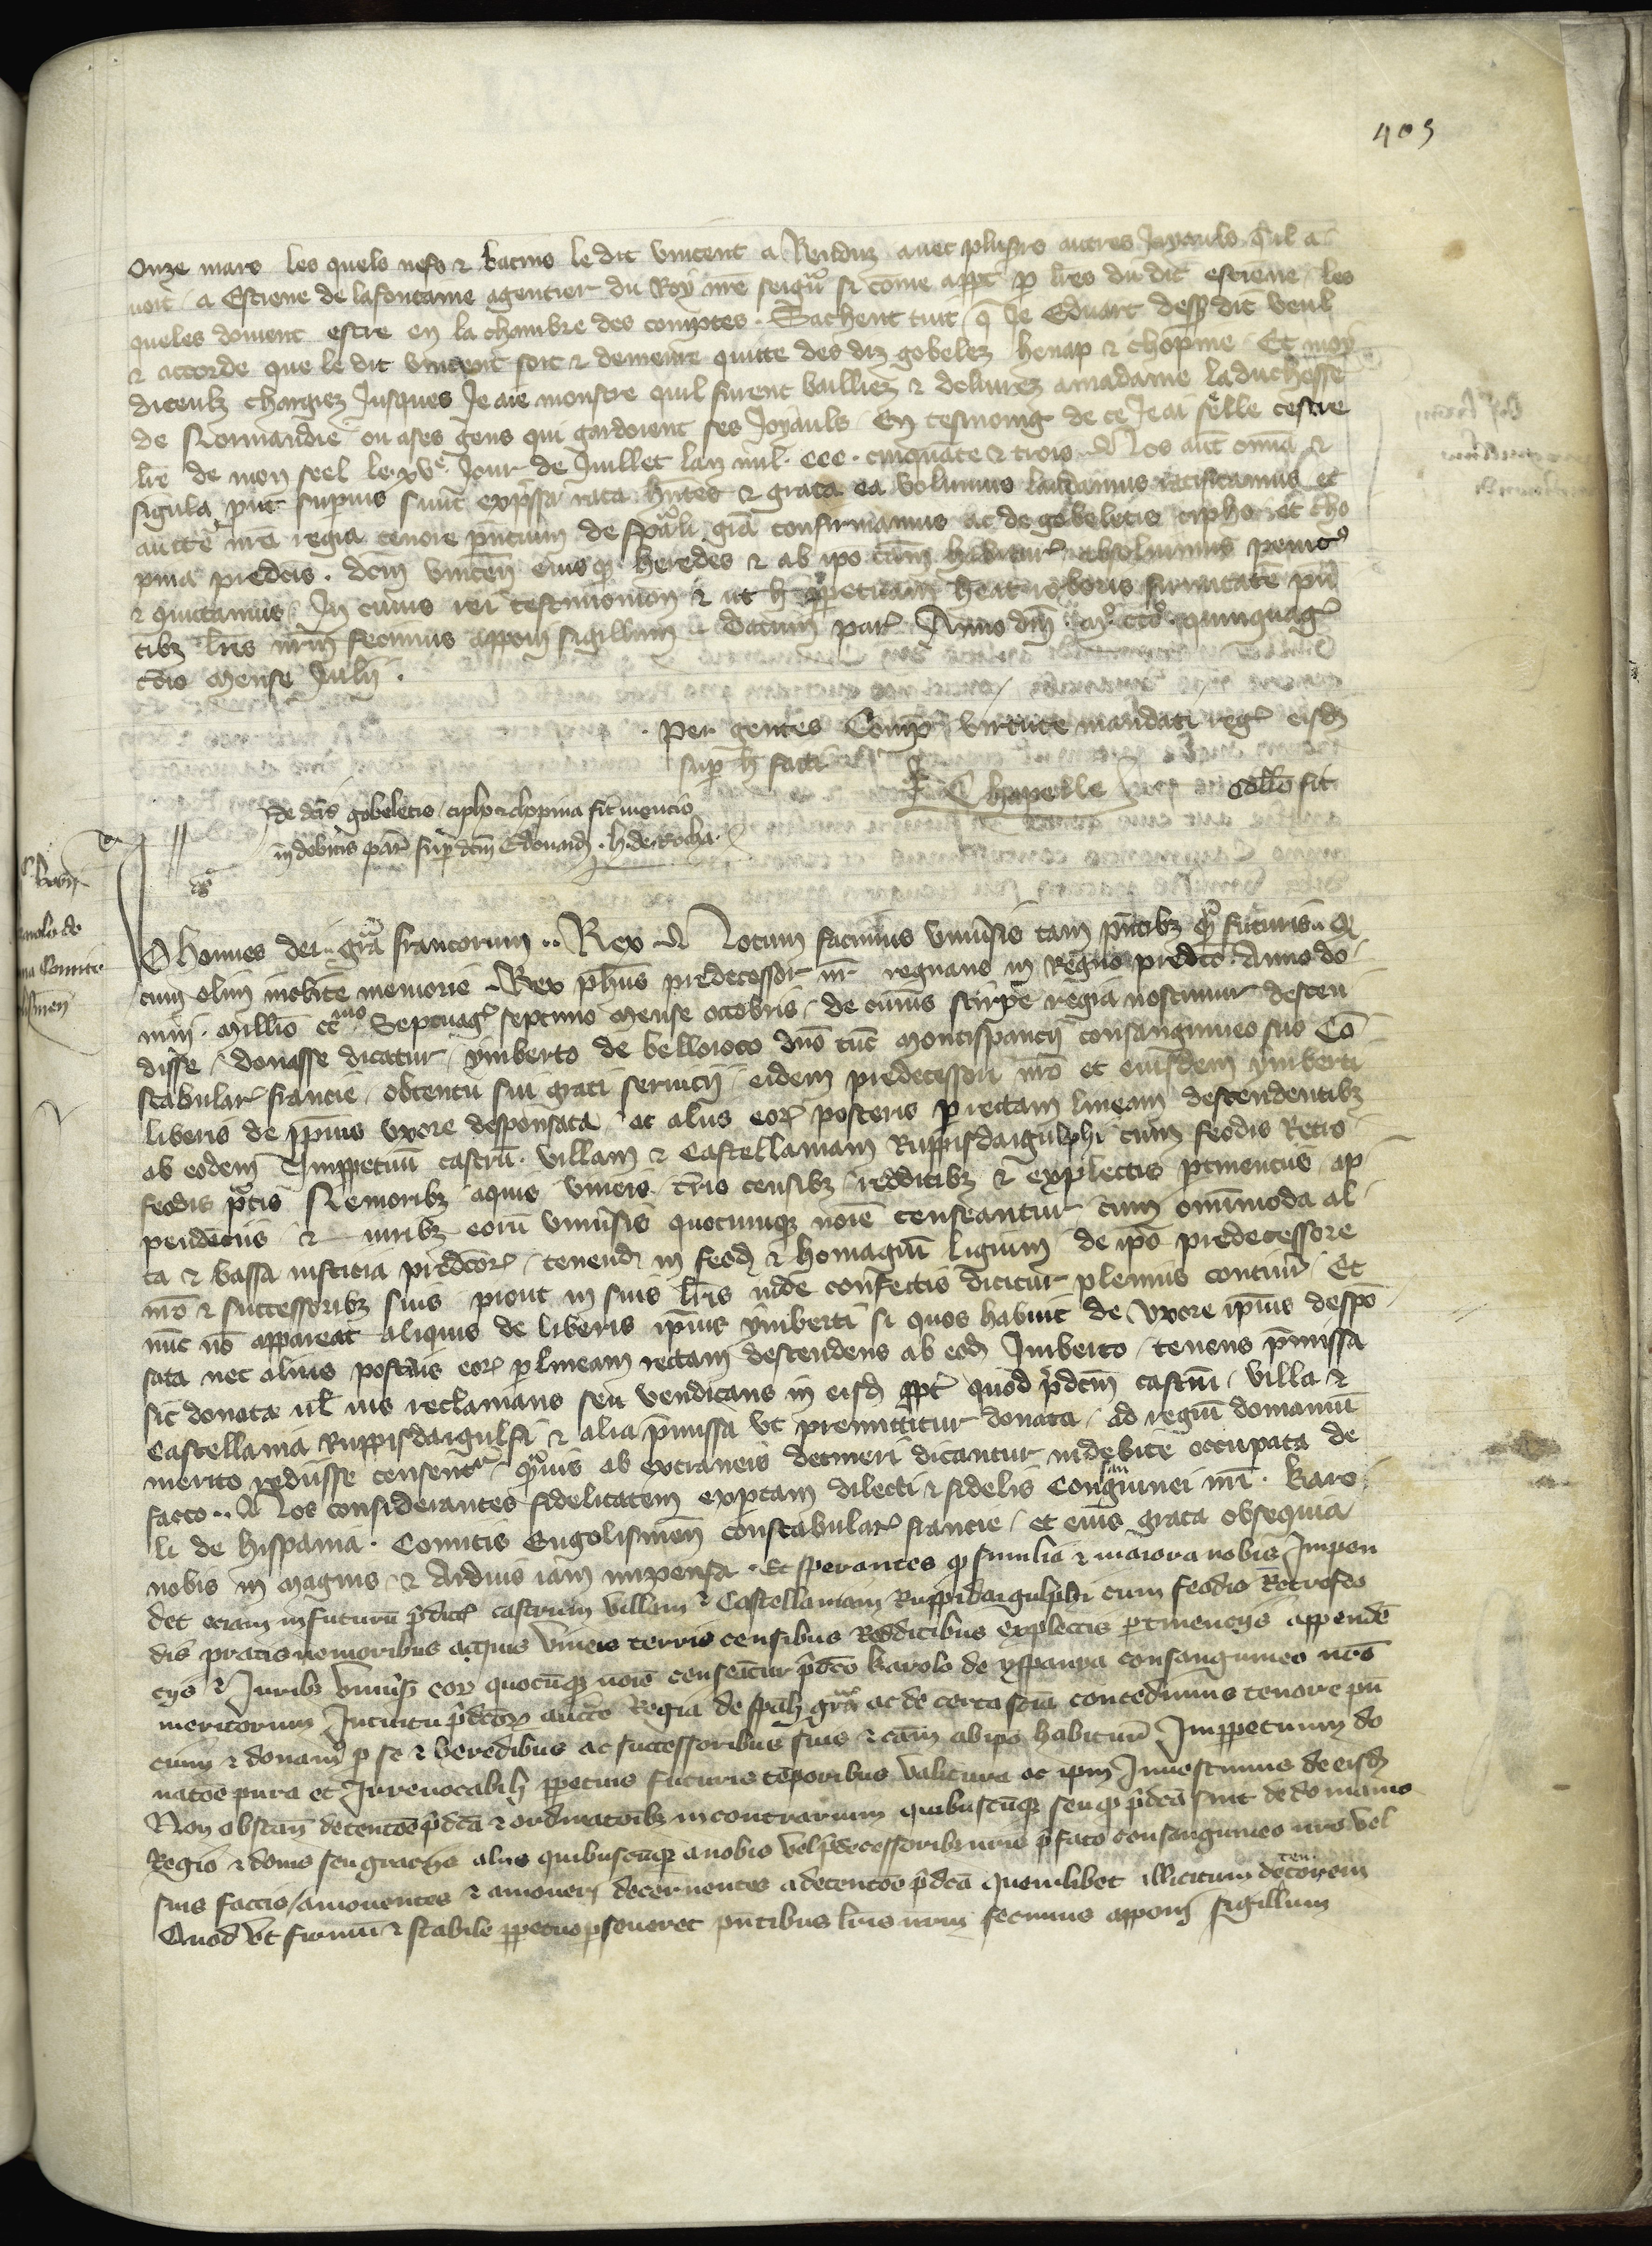 403
Onze mars les quels nefs & bacins le dit vincent a Renduz avec plus's autres Joyauls quil a
voit a Estiene de lafontaine argentier du Roy nre seigr si come appt p lres du dit estiene les
queles doivent estre en la chambre des comptes. Sachent tuit q Je Edouart dess dit veul
& accorde que le dit vincent soit & demeure quitte des diz gobelez henap & chopine Et moy
diceulz chargiez Jusques Je aie monstre quil furent bailliez & delivrez a madame la duchesse
de Normandie ou a ses gens qui gardoient ses Joyauls En tesmoing de ce Je ai selle ceste
lre de mon seel le xve Jour de Juillet lan mil. ccc. cinquate & trois. Nos aut omia &
sigula put supius sunt expssa rata hntes & grata ea volumus laudamus ratificamus et
aucte nra regia tenore pntium de spali gra confirmamus ac de gobeletis cipho et cho
pina predcis. dcm vincen eiusq heredes & ab ipo cam hituros absolvimus penit9
& quittamus In cuius rei testimonion & ut h ppetuam heat roboris firmitate pn
tibz lris nrm fecimus apponi sigillum. Datum par Anno dni mo ccco quinquag
tcio mense Julii.
Per gentes Comp virtute mandati reg eisd
sup h facti
Chapelle Collo fit
de dcis gobeletis cipho & chopina fit mencio
in debitis par sup dcm Edouard. h. de Rocha.
Johannes dei gra francorum .. Rex Notum facimus univsis tam pntibz q futuris. Q
cum olim inclite memorie Rex phus predecessor nr regnans in Regno predco Anno do
mini. Millio CCmo Septuag septimo mense octobris, de cuius stirpe regia noscimur descen
disse, donasse dicatur, ymberto de bellojoco dno tuc Montispancii consanguineo suo Co
stabular francie, obtentu sui grati servicii eidem predecessori nro et eiusdem ymberti
liberis de ipius uxore desponsata ac aliis eor posteris p rectam lineam descendentibz
ab eodem Imppetuu castru. villam & Castellaniam Ruppisdaigulphi cum feodis Retro
feodis ptis Nemoribz aquis vineis tris censibz redditibz & explectis ptinentiis ap
pendeciis & iuribz eoru univsis quocumqz noie censeantur cum omimoda al
ta & bassa iusticia predcor, tenend in feod & homagiu ligium de ipo predecessore
nro & successoribz suis prout in suis lris inde confectis dicitur plenius contineri Et
nuc no appareat aliquis de liberis ipius ymberti si quos habuit de uxore ipius despo
sata nec alius posteris eor p lineam rectam descendens ab eod Imberto tenens pmissa
sic donata ul ius reclamans seu vendicans in eisd ppt quod pdcm castru, villa &
Castellania Ruppisdaigulfi & alia pmissa ut premittitur donata, ad regiu domaniu
merito rediisse censentr quvis ab extraneis detineri dicantur indebite occupata de
facto .. Nos considerantes fidelitatem exptam dilecti & fidelis consanguinei nri. Karo
li de hispania. Comitis Engolismen constabular francie, et eius grata obsequia
nobis in magnis & Arduis iam impensa. Et sperantes q similia & maiora nobis Impen
det eciam in futuru pdict castrum villam & Castellaniam Ruppidaigulphi cum feodis Retrofeo
dis pratis nemoribus aquis vineis terris censibus Redditibus explectis ptinencijs appende
cijs & Juribz univs eor quocuqz noie censeatur pdco karolo de yspanya consanguineo nro
meritorum Intuitu pdcor aucte Regia de spali gra ac de certa scia concedimus tenore pn
cium & donam p se & heredibus ac successoribus suis & cam ab ipo habitur Imppetuum do
natoe pura et Irrevocabili ppetuis futuris teporibus valitura ac ipm Investimus de eisd
Non obstan detentoe pdca & ordinatoibz in contrarium quibuscuqz seu q pdca sint de domanio
Regio & donis seu gracijs aliis quibuscuqz a nobis vel pdecessoribz nris pfato consanguineo nro vel
suis factis / amoventes & amoveri decernentes a detentoe pdca quemlibet illicitum detentorem
Quod ut firmu & stabile ppetuo pseveret pntibus lris nrm fecimus apponi sigillum